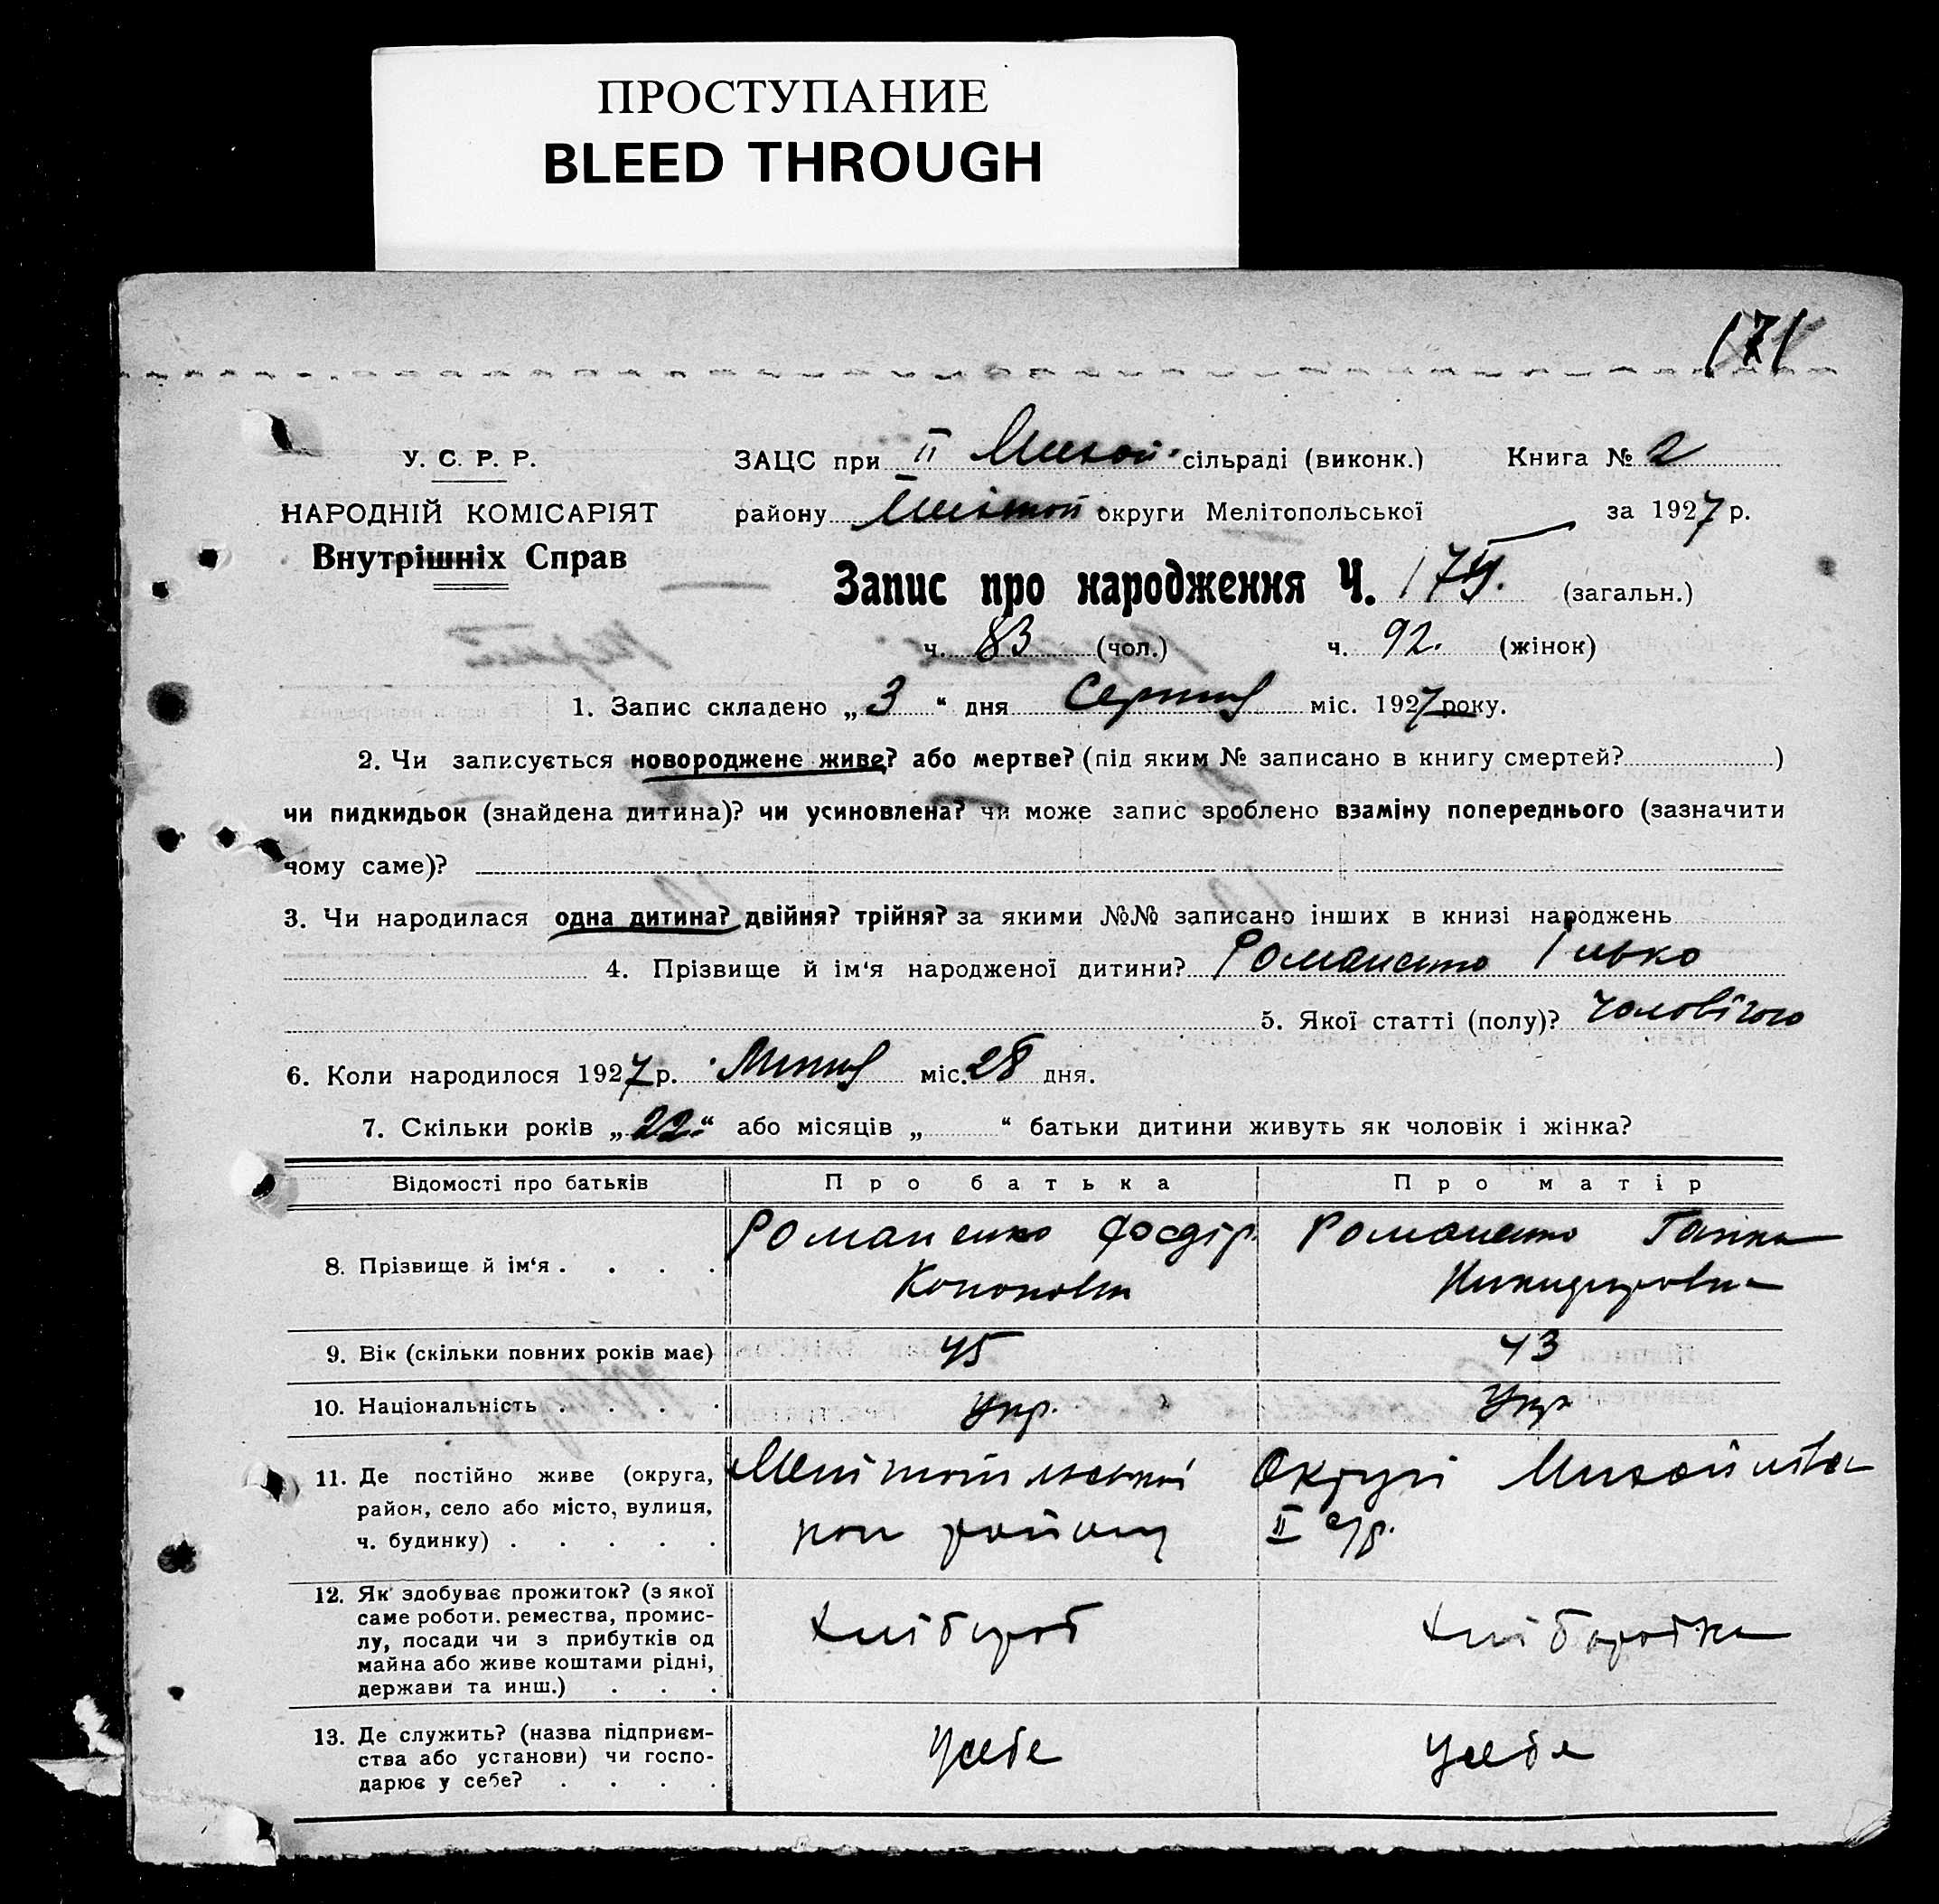 ПРОСТУПАНИЕ
BLEED THROUGH
171
У. С. Р. Р.
НАРОДНІЙ КОМІСАРІЯТ
Внутрішніх Справ
ЗАЦС при II Михай. сільраді (виконк.) Книга № 2
району округи Мелітопольської за 1927 р.
Запис про народження Ч. (загальн.)
ч. 83 (чол.) ч. 92. (жінок)
1. Запис складено „ 3 “ дня Серпня міс. 1927 року.
2. Чи записується новороджене живе? або мертве? (під яким № записано в книгу смертей? )
чи пидкидьок (знайдена дитина)? чи усиновлена? чи може запис зроблено взаміну попереднього (зазначити
чому саме)?
3. Чи народилася одна дитина? двійня? трійня? за якими №№ записано інших в книзі народжень
4. Прізвище й ім‘я народженої дитини? Романенко Ілько
5. Якої статті (полу)? чоловічого
6. Коли народилося 1927 р. Липня міс. 28 дня.
7. Скільки років „ 22 “ або місяців „ “ батьки дитини живуть як чоловік і жінка?
Відомості про батьків Про батька Про матір
8. Прізвище й ім‘я . . . . Романенко Федір Романенко Ганна
Кононович Никифоровна
9. Вік (скільки повних років має) 45 43
10. Національність . . . . Укр. Укр
11. Де постійно живе (округа, Мелітопільської Округи Михайлівка
район, село або місто, вулиця,
ч. будинку) . . . . . району II с/р.
12. Як здобуває прожиток? (з якої
саме роботи. ремества, промис-
лу, посади чи з прибутків од Хлібороб Хліборобка
майна або живе коштами рідні,
держави та инш.) . . .
13. Де служить? (назва підприєм-
ства або установи) чи госпо- У себе У себе
дарює у себе? . . . .